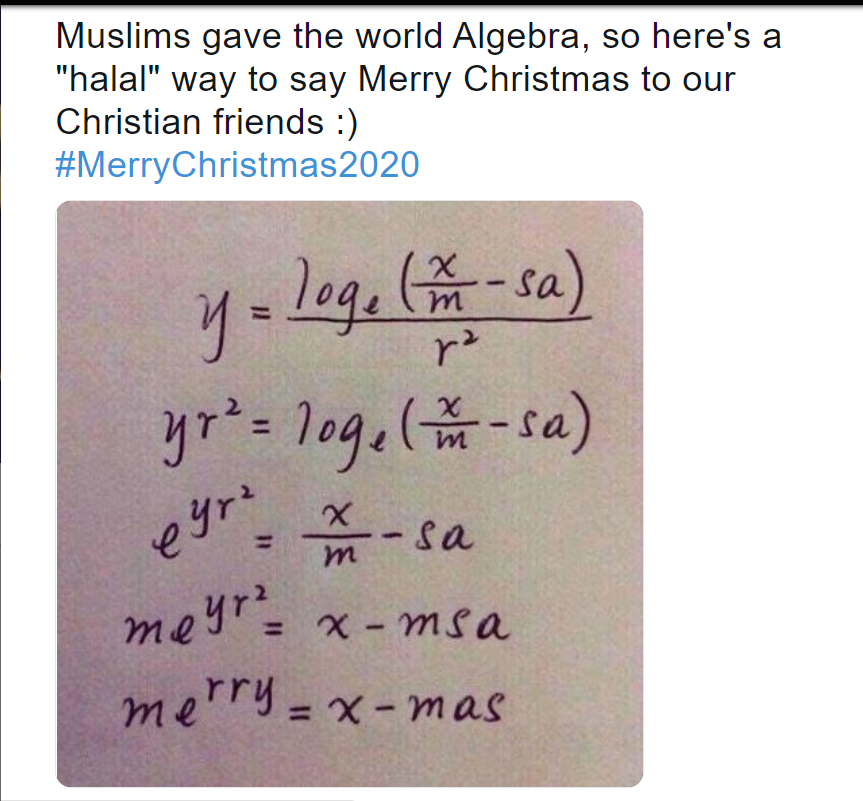 Muslims gave the world Algebra, so here's a
"halal" way to say Merry Christmas to our
Christian friends :)
#MerryChristmas2020
y = logₑ(x/m - sa)/r²
yr² = logₑ(x/m - sa)
e^yr² = x/m - sa
me^yr² = x - msa
me^rry = x - mas